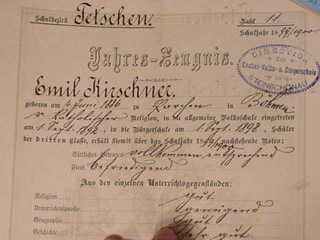 Schulbezirk Tetschen. Zahl 11
Schuljahr 1899/1900
Jahres-Zeugnis.
DIRECTION
STEINSCHÖNAU
Emil Kirschner
geboren am Juni 1886 zu in Böhmen
Religion, in die allgemeine Volksschule eingetreten
am 1. Sept. 1892, in die Bürgerschule am 1. Sept. 1898, Schüler
der dritten Classe, erhält hiemit über das Schuljahr nachstehende Noten:
Sittliches Betragen vollkommen entsprechend
Fleiss befriedigend
Aus den einzelnen Unterrichtsgegenständen:
Religion gut
Unterrichtssprache genügend
Geographie gut
Geschichte sehr gut